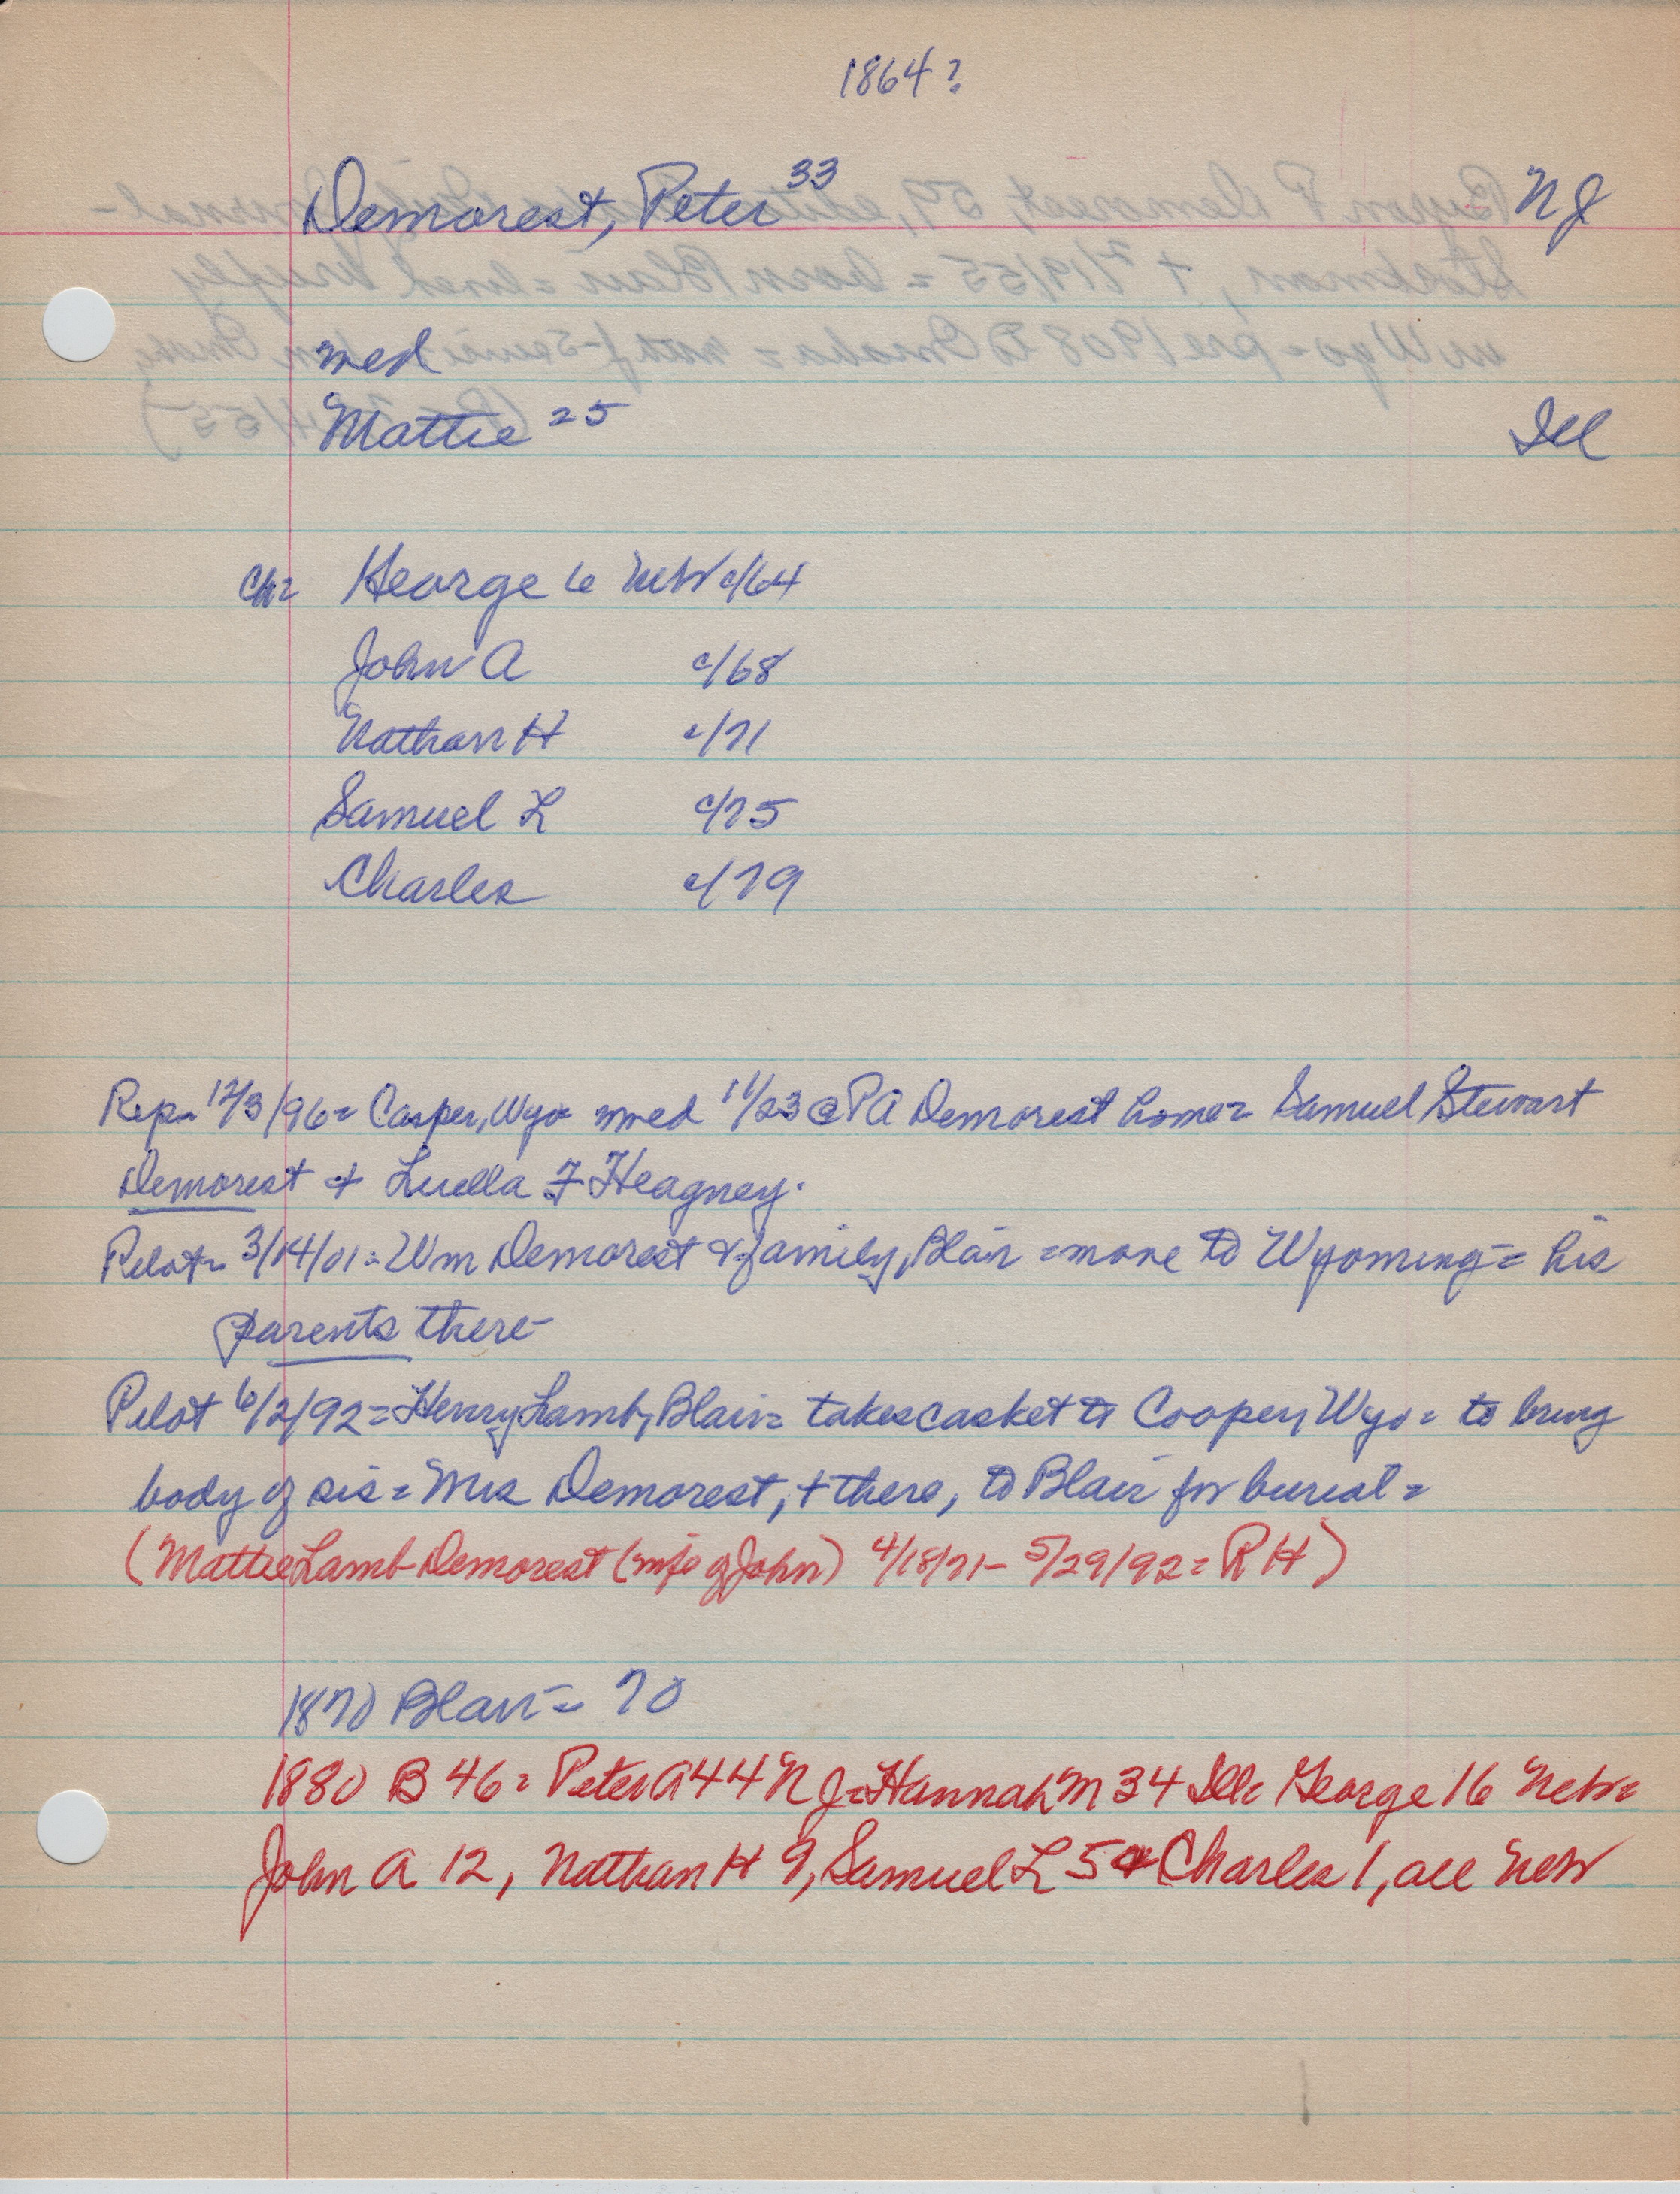 1864?
Demorest, Peter 33 NJ
med
Mattie 25 Ill
Ch= George 6 Neb c/64
John A c/68
Nathan H c/71
Samuel L c/75
Charles c/79
Rep= 12/3/96= Casper, Wyo mned 11/23 @ PA Demorest home= Samuel Stewart
Demorest + Luella F Heagney.
Pilot= 3/14/01= Wm Demorest & family, Blair = move to Wyoming = his
parents there
Pilot 6/2/92= Henry Lamb, Blair= takes casket to Cooper, Wyo= to bring
body of sis= Mrs Demorest, + there, to Blair for burial=
(Mattie Lamb Demorest (wife of John) 4/18/71- 5/29/92= RH)
1870 Blair= 70
1880 B 46= Peter A 44 NJ= Hannah M 34 Ill= George 16 Neb=
John A 12, Nathan H 9, Samuel L 5 & Charles 1, all Neb